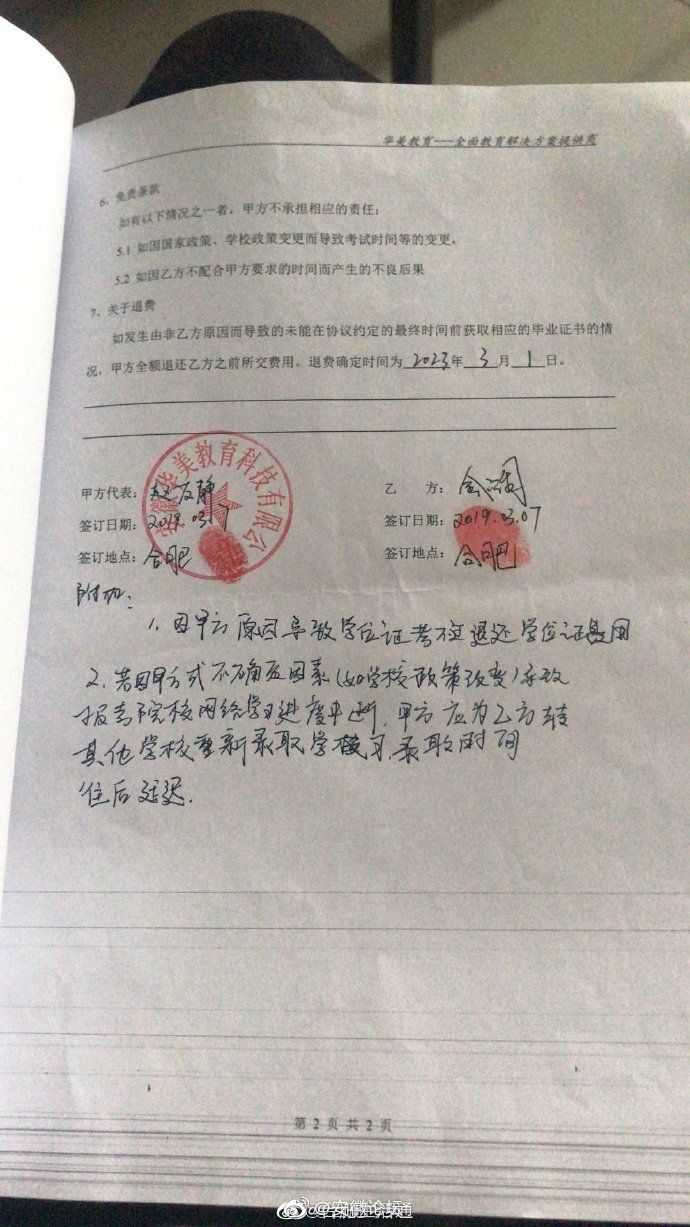 华美教育——全面教育解决方案提供商
6、免责条款
如有以下情况之一者，甲方不承担相应的责任：
5.1 如因国家政策、学校政策变更而导致考试时间等的变更，
5.2 如因乙方不配合甲方要求的时间而产生的不良后果
7、关于退费
如发生由非乙方原因而导致的未能在协议约定的最终时间前获取相应的毕业证书的情
况，甲方全额退还乙方之前所交费用。退费确定时间为2023年3月1日。
安徽华美教育科技有限公
甲方代表：赵友静
乙 方：
签订日期：2019.03.07
签订日期：2019.03.07
签订地点：合肥
签订地点：合肥
附加：
1、因甲方原因导致学位证考不过退还学位证费用
2、若因甲方式不确应因素（如学校政策改变）导致
报考院校网络学习进度平断，甲方应为乙方转
其他学校重新录取学习，录取时间
往后延迟.
第 2 页 共 2 页
@安徽论坛